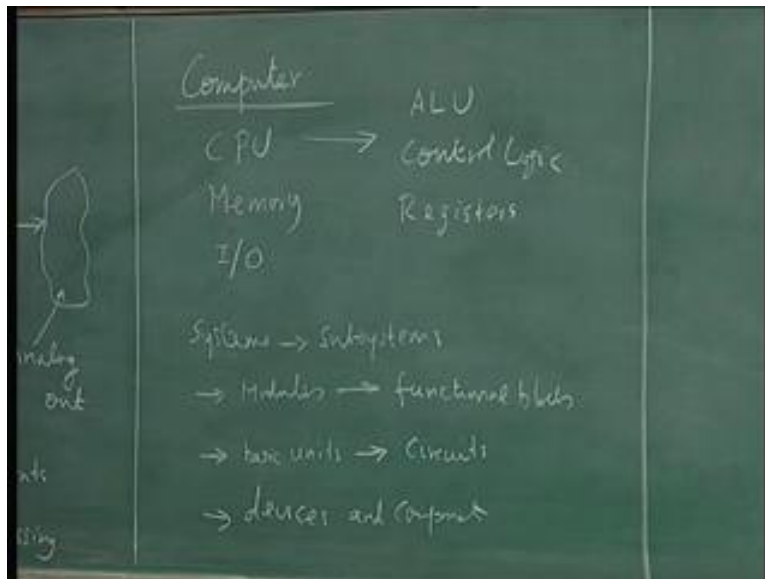 Computer
ALU
CPU → Control Logic
Memory
Registors
I/O
Systems → Subsystems
→ Modules → functional blocks
→ basic units → Circuits
→ devices and
out